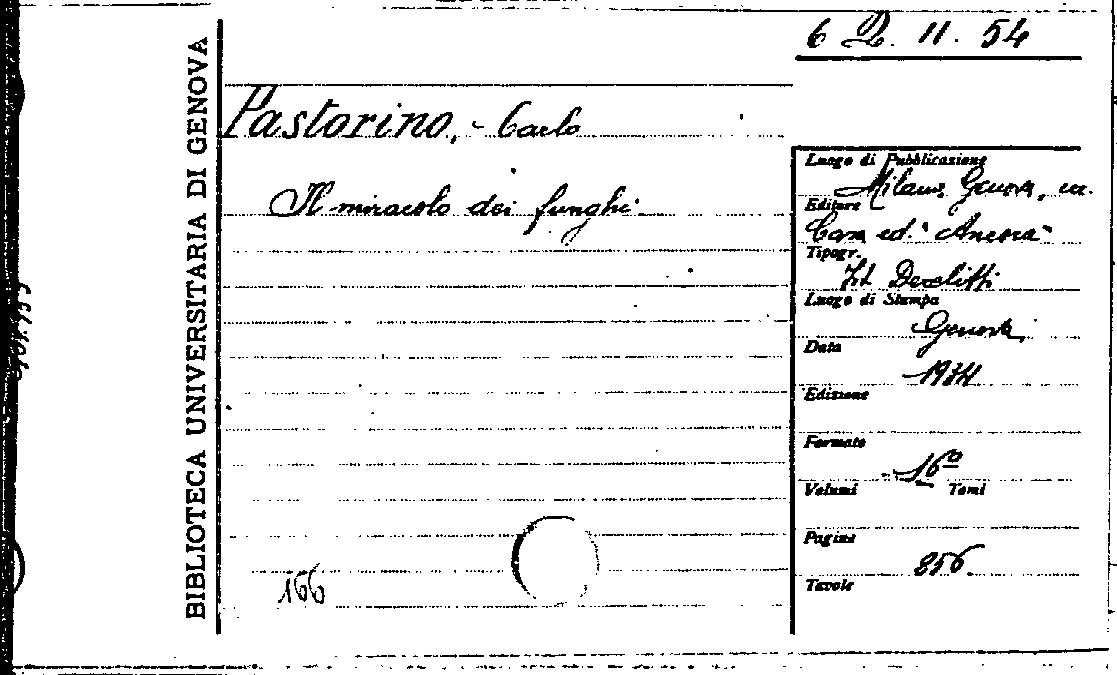 6 Q. 11. 54
BIBLIOTECA UNIVERSITARIA DI GENOVA
Pastorino, - Carlo
Il miracolo dei funghi
Luogo di Pubblicazione
Milano, Genova, ecc.
Editore
Casa ed. "Ancora"
Tipogr.
Luogo di Stampa
Genova,
Data
1934
Edizione
Formato
16º
Volumi Tomi
Pagine
256.
Tavole
166